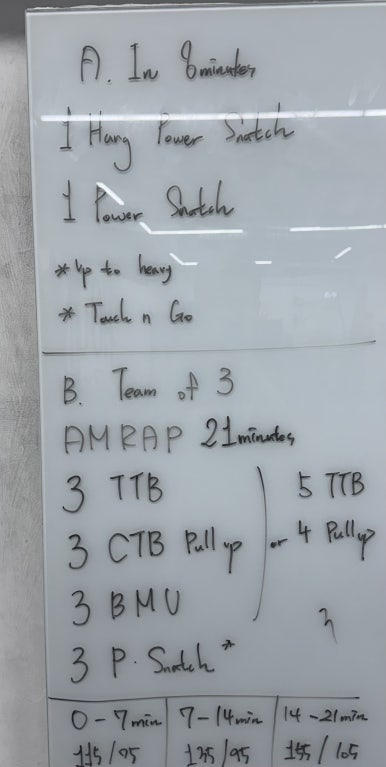 A. In 8 minutes
1 Hang Power Snatch
1 Power Snatch
* Up to heavy
* Touch n Go
B. Team of 3
AMRAP 21 minutes
3 TTB
3 CTB Pull up
3 BMU
or
5 TTB
4 Pull up
3 P. Snatch *
0-7 min 7-14 min 14-21 min
115/75 135/95 155/105